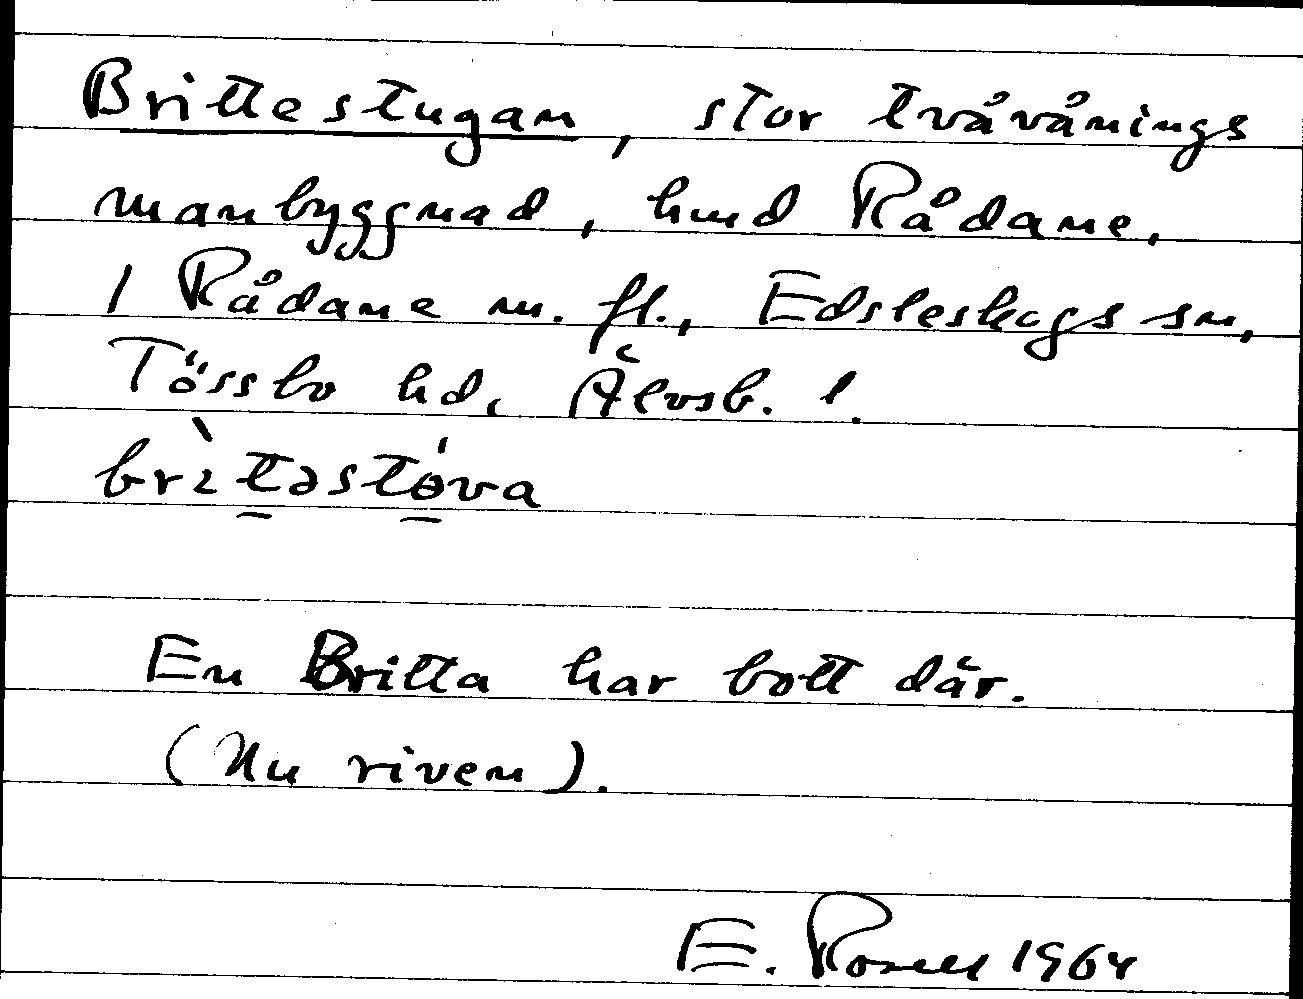 Brittestugan, stor tvåvånings
manbyggnad, hmd Rådane,
1 Rådane m. fl., Edsleskogs sn,
Tössbo hd, Älvsb. l.
brìtəstóva
En Britta har bott där.
(Nu riven).
E. Rosell 1964